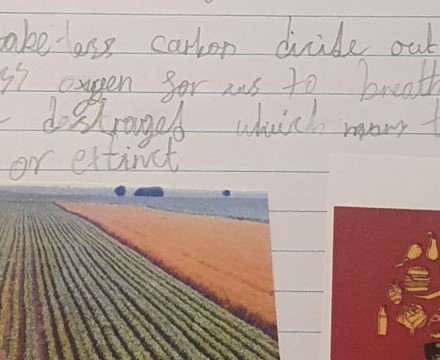 take less carbon dioide out
oxygen for us to breath
destroyed which means t
or extinct